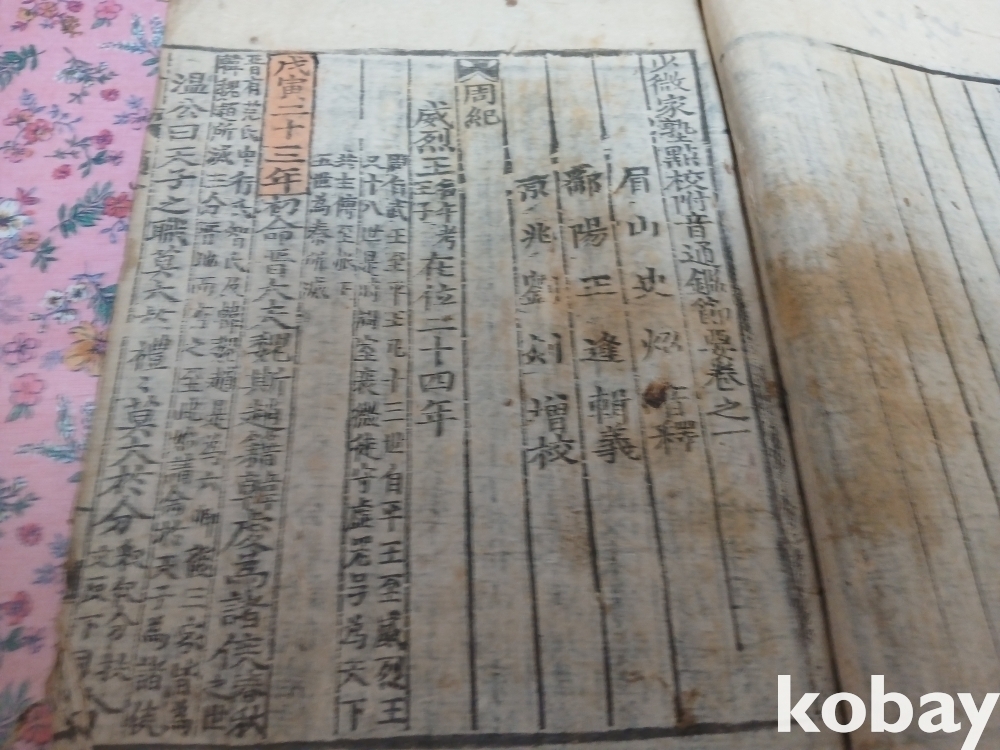 少微家塾點校附音通鑑節要卷之一
眉山史炤音釋
鄱陽王逢輯義
京兆劉剡增校
周紀
威烈王名午考王子在位二十四年
周自武王至平王凡十三世自平王至威烈王
又十八世是時周室衰微徒守虛器号為天下
共主傳至赧王
五世為秦所滅
戊寅二十三年初命晋大夫魏斯趙籍韓虔為諸侯春秋
之世
晋有范氏中行氏智氏及韓魏趙是為六卿
韓魏趙所滅三分晋地而有之至此
三家皆為
溫公曰天子之職莫大於禮〻莫大於分
kobay